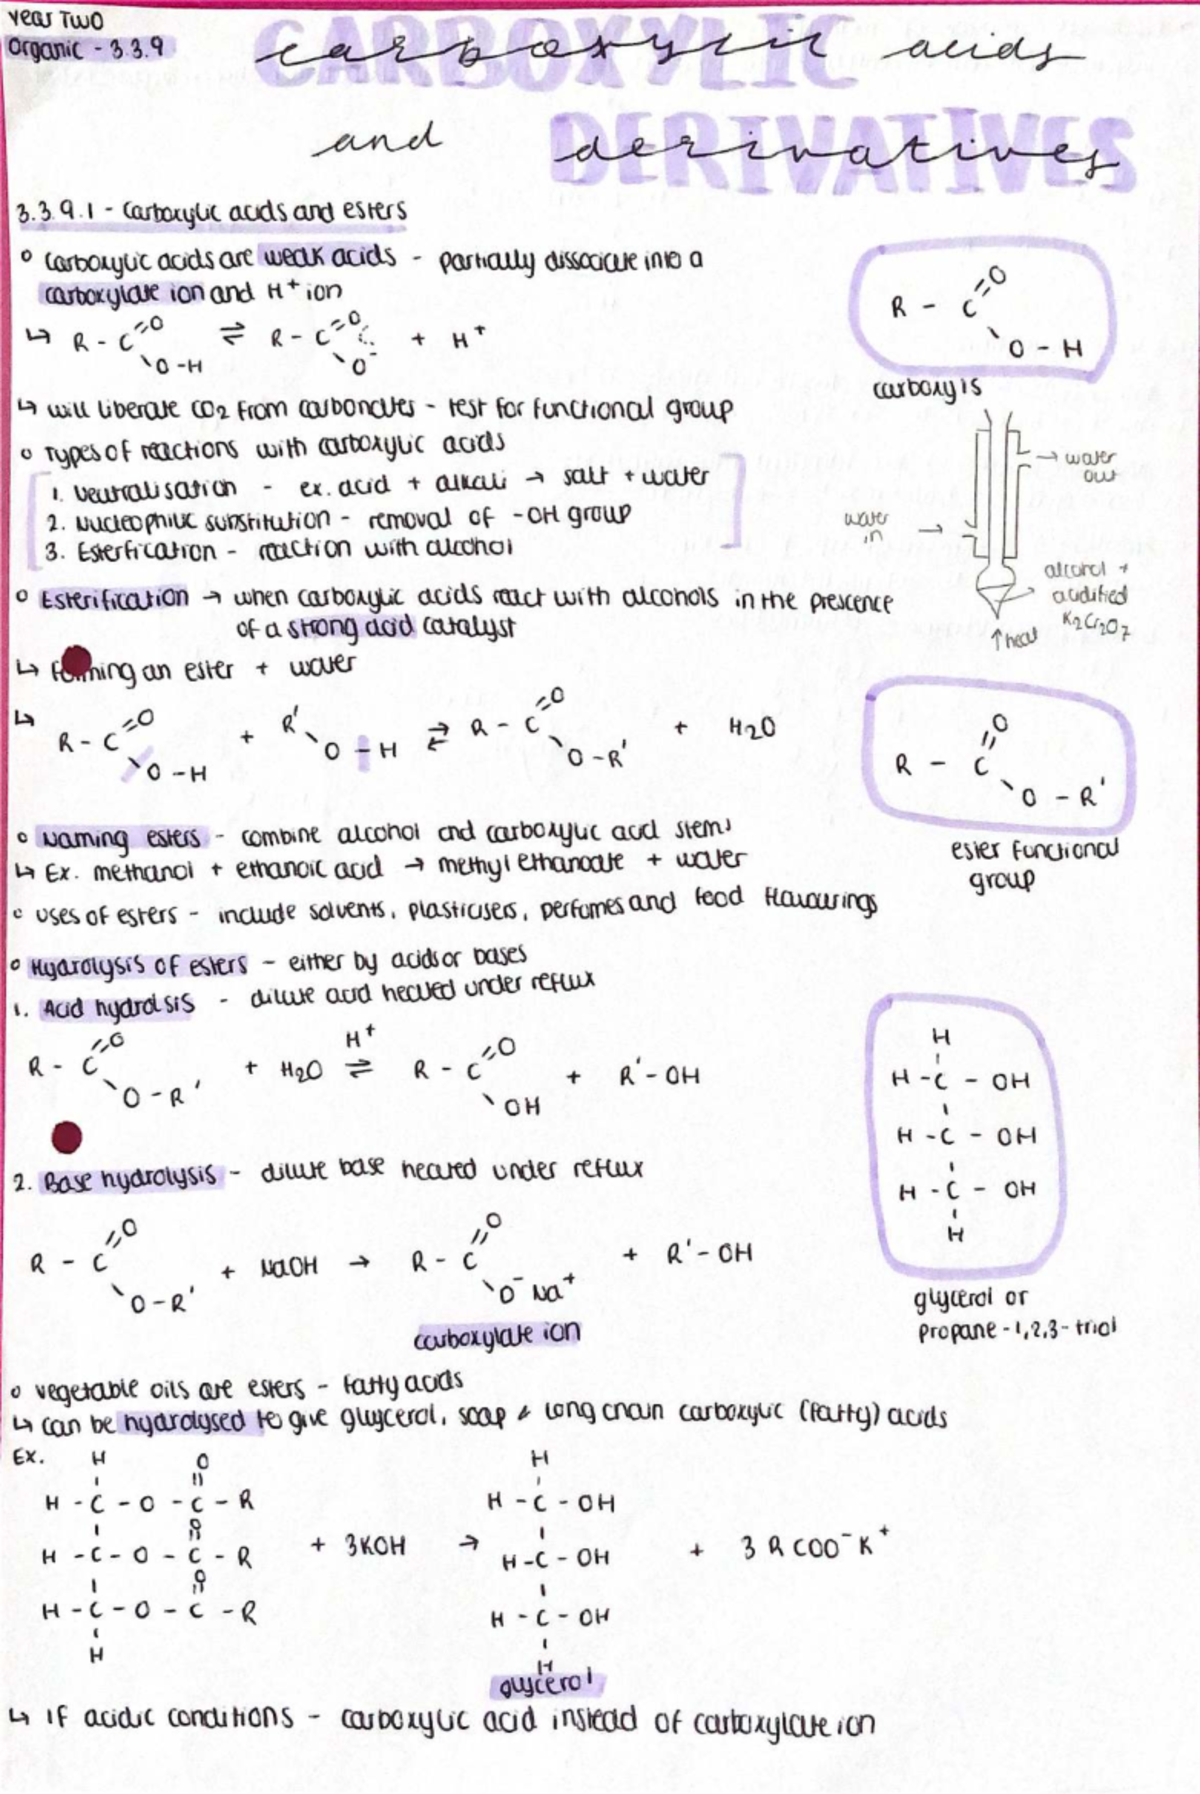 Year Two
Organic - 3.3.9
CARBOXYLIC
carboxylic acids
DERIVATIVES
and derivatives
3.3.9.1 - Carboxylic acids and esters
o carboxylic acids are weak acids - partially dissociate into a
carboxylate ion and H+ ion
↳ R - C =O O - H ⇌ R - C =O O⁻ + H⁺
R - C =O O - H
carboxyls
↳ will liberate CO2 from carbonates - test for functional group
o Types of reactions with carboxylic acids
1. Neutralisation - ex. acid + alkali → salt + water
2. Nucleophilic substitution - removal of -OH group
3. Esterfication - reaction with alcohol
→ water out
water in →
alcohol + acidified K2Cr2O7
↑heat
o Esterification → when carboxylic acids react with alcohols in the prescence
of a strong acid catalyst
↳ forming an ester + water
↳ R - C =O O - H + R' O - H ⇌ R - C =O O - R' + H2O
R - C =O O - R'
ester functional
group
o Naming esters - combine alcohol and carboxylic acid stems
↳ Ex. methanol + ethanoic acid → methyl ethanoate + water
o uses of esters - include solvents, plasticisers, perfumes and food flavourings
o Hydrolysis of esters - either by acids or bases
1. Acid hydrolsis - dilute acid heated under reflux
R - C =O O - R' + H2O ⇌ H⁺ R - C =O OH + R' - OH
2. Base hydrolysis - dilute base heated under reflux
R - C =O O - R' + NaOH → R - C =O O⁻ Na⁺ + R' - OH
carboxylate ion
H
H - C - OH
H - C - OH
H - C - OH
H
glycerol or
propane - 1,2,3 - triol
o vegetable oils are esters - fatty acids
↳ can be hydrolysed to give gluycerol, soap & long chain carboxylic (fatty) acids
Ex. H O H
H - C - O - C - R H - C - OH
H - C - O - C - R + 3KOH → H - C - OH + 3 RCOO⁻K⁺
H - C - O - C - R H - C - OH
H H
glycerol
↳ If acidic conditions - carboxylic acid instead of carboxylate ion